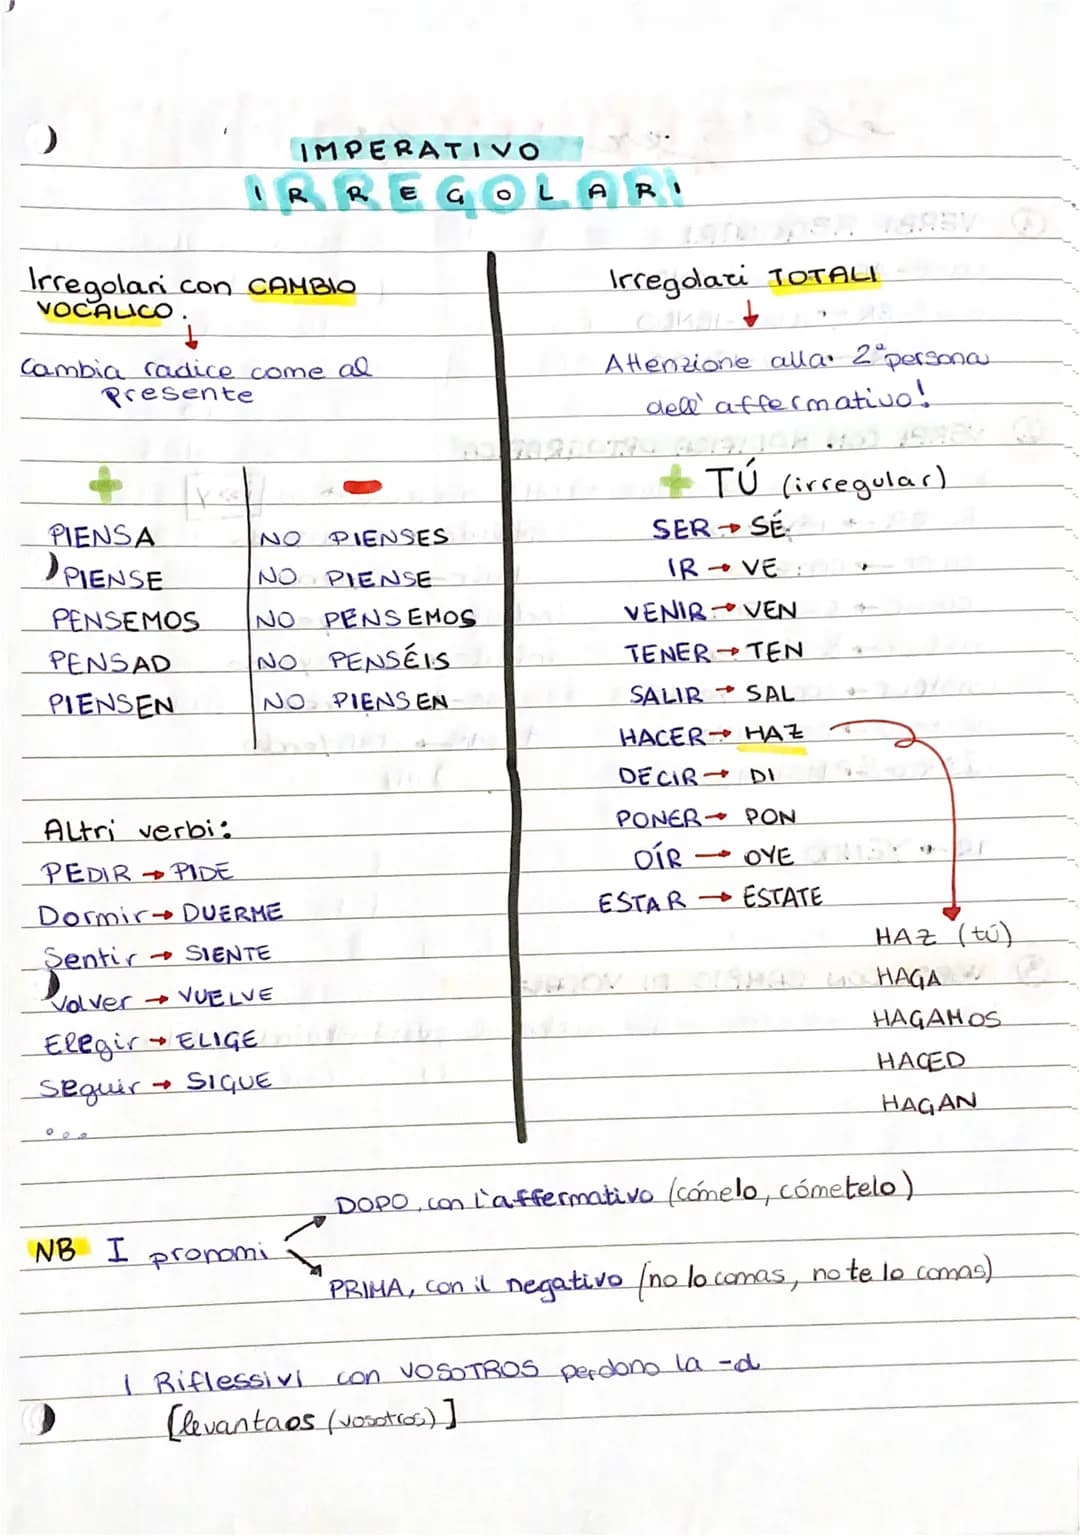 IMPERATIVO
IRREGOLARI
Irregolari con CAMBIO
VOCALICO.
↓
Cambia radice come al
Presente
+ | -
PIENSA | NO PIENSES
PIENSE | NO PIENSE
PENSEMOS | NO PENSEMOS
PENSAD | NO PENSÉIS
PIENSEN | NO PIENSEN
Altri verbi:
PEDIR → PIDE
Dormir → DUERME
Sentir → SIENTE
Volver → VUELVE
Elegir → ELIGE
Seguir → SIGUE
...
Irregolari TOTALI
↓
Attenzione alla 2ª persona
dell'affermativo!
+ TÚ (irregular)
SER → SÉ
IR → VE
VENIR → VEN
TENER → TEN
SALIR → SAL
HACER → HAZ
DECIR → DI
PONER → PON
OÍR → OYE
ESTAR → ESTATE
HAZ (tú)
HAGA
HAGAMOS
HACED
HAGAN
DOPO, con l'affermativo (cómelo, cómetelo)
NB I pronomi
PRIMA, con il negativo (no lo comas, no te lo comas)
I Riflessivi con VOSOTROS perdono la -d
[levantaos (vosotros)]